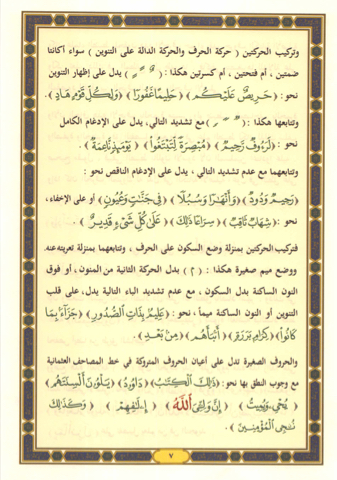 وتركيب الحركتين ( حركة الحرف والحركة الدالة على التنوين ) سواء أكانتا
ضمتين ، أم فتحتين ، أم كسرتين هكذا : ( ـٌ ـً ـٍ ) يدل على إظهار التنوين
نحو : ﴿حَرِيصٌ عَلَيْكُم﴾ ﴿حَلِيمًا غَفُورًا﴾ ﴿وَلِكُلِّ قَوْمٍ هَادٍ﴾ .
وتتابعها هكذا : ( ) مع تشديد التالي، يدل على الإدغام الكامل
نحو : ﴿لَرَءُوفٌ رَّحِيمٌ﴾ ﴿مُبْصِرَةً لِّتَبْتَغُوا﴾ ﴿يَوْمَئِذٍ نَّاعِمَةٌ﴾ .
وتتابعهما مع عدم تشديد التالي ، يدل على الإدغام الناقص نحو :
﴿رَحِيمٌ وَدُودٌ﴾ ﴿وَأَنْهَٰرًا وَسُبُلًا﴾ ﴿فِي جَنَّٰتٍ وَعُيُونٍ﴾ أو على الإخفاء،
نحو : ﴿شِهَابٌ ثَاقِبٌ﴾ ﴿سِرَاعًا ذَٰلِكَ﴾ ﴿عَلَىٰ كُلِّ شَىْءٍ قَدِيرٌ﴾ .
فتركيب الحركتين بمنزلة وضع السكون على الحرف ، وتتابعهما بمنزلة تعريته عنه
ووضع ميم صغيرة هكذا : ( م ) بدل الحركة الثانية من المنون ، أو فوق
النون الساكنة بدل السكون ، مع عدم تشديد الباء التالية يدل، على قلب
التنوين أو النون الساكنة ميماً ، نحو : ﴿عَلِيمٌۢ بِذَاتِ الصُّدُورِ﴾ ﴿جَزَآءًۢ بِمَا
كَانُوا﴾ ﴿كِرَامٍۭ بَرَرَةٍ﴾ ﴿أَنۢبِئْهُم﴾ ﴿مِنۢ بَعْدِ﴾ .
والحروف الصغيرة تدل على أعيان الحروف المتروكة في خط المصاحف العثمانية
مع وجوب النطق بها نحو : ﴿ذَٰلِكَ الْكِتَٰبُ﴾ ﴿دَاوُۥدَ﴾ ﴿يَلْوُۥنَ أَلْسِنَتَهُم﴾
﴿يُحْىِۦ وَيُمِيتُ﴾ ﴿إِنَّ وَلِـِّۧىَ اللَّهُ﴾ ﴿إِۦلَٰفِهِمْ﴾ ﴿وَكَذَٰلِكَ
نُۨجِى الْمُؤْمِنِينَ﴾ .
٧